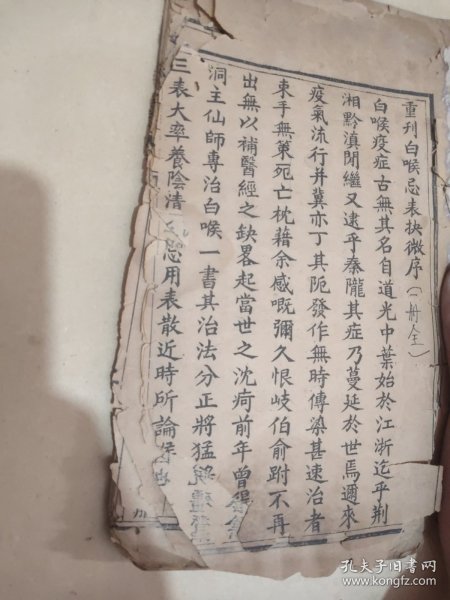 重刊白喉忌表抉微序(一册全)
白喉疫症古無其名自道光中葉始於江浙迄乎荆
湘黔滇閒繼又逮乎秦隴其症乃蔓延於世焉邇來
疫氣流行并冀亦丁其阨發作無時傳染甚速治者
束手無策死亡枕藉余感嘅彌久恨岐伯俞跗不再
出無以補醫經之缺畧起當世之沈疴前年曾得
洞主仙師專治白喉一書其治法分正將猛
三表大率養陰清忌用表散近時所論
孔夫子旧书网
www.kongfz.com